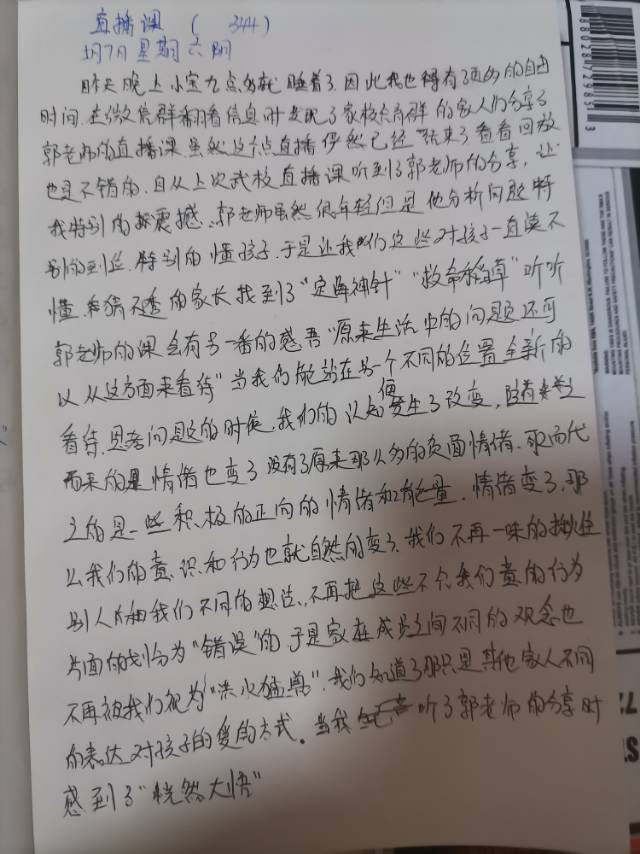 直播课 (344)
1月7日星期六阴
昨天晚上小宝九点多就睡着了.因此我也得有了更多的自由
时间.在微信群翻看信息时发现了家校共育群的家人们分享了
郭老师的直播课虽然这个点直播俨然已经结束了看看回放
也是不错的.自从上次武校直播课听到了郭老师的分享,让
我特别的震撼.郭老师虽然很年轻但是他分析问题特
别的到位.特别的懂孩子.于是让我们这些对孩子一直读不
懂.和猜不透的家长找到了"定海神针""救命稻草"听听
郭老师的课会有另一番的感悟"原来生活中的问题还可
以从这方面来看待"当我们能站在另一个不同的位置全新的
看待.思考问题的时候,我们的认知便发生了改变,随
而来的是情绪也变了没有了原来那么多的负面情绪.取而代
之的是一些积极的正向的情绪和能量.情绪变了,那
么我们的意识和行为也就自然的变了.我们不再一味的揪住
别人和我们不同的想法.不再把这些不合我们意的行为
片面的划分为"错误"的于是家庭成员之间不同的观念也
不再被我们视为"洪水猛兽".我们知道了那只是其他家人不同
的表达对孩子的爱的方式.当我听了郭老师的分享时
感到了"恍然大悟"
6802847296513